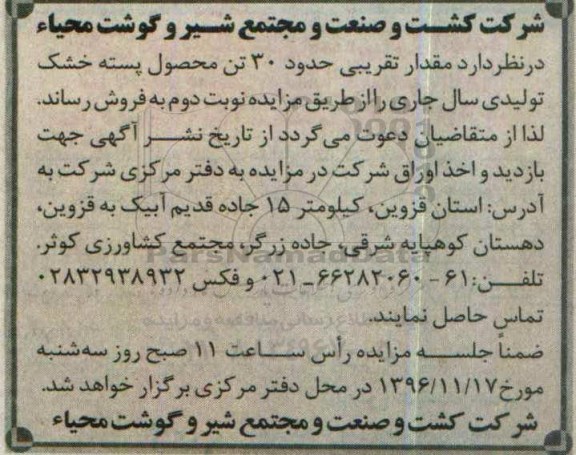 شرکت کشت و صنعت و مجتمع شیر و گوشت محیاء
درنظر دارد مقدار تقریبی حدود ۳۰ تن محصول پسته خشک
تولیدی سال جاری را از طریق مزایده نوبت دوم به فروش رساند.
لذا از متقاضیان دعوت می گردد از تاریخ نشر آگهی جهت
بازدید و اخذ اوراق شرکت در مزایده به دفتر مرکزی شرکت به
آدرس: استان قزوین، کیلومتر ۱۵ جاده قدیم آبیک به قزوین،
دهستان کوهپایه شرقی، جاده زرگر، مجتمع کشاورزی کوثر.
ParsNamadData
تلفن: ۶۱ - ۶۶۲۸۲۰۶۰ - ۰۲۱ و فکس ۰۲۸۳۲۹۳۸۹۳۲
تماس حاصل نمایند.
ضمناً جلسه مزایده رأس ساعت ۱۱ صبح روز سه شنبه
مورخ ۱۳۹۶/۱۱/۱۷ در محل دفتر مرکزی برگزار خواهد شد.
شرکت کشت و صنعت و مجتمع شیر و گوشت محیاء